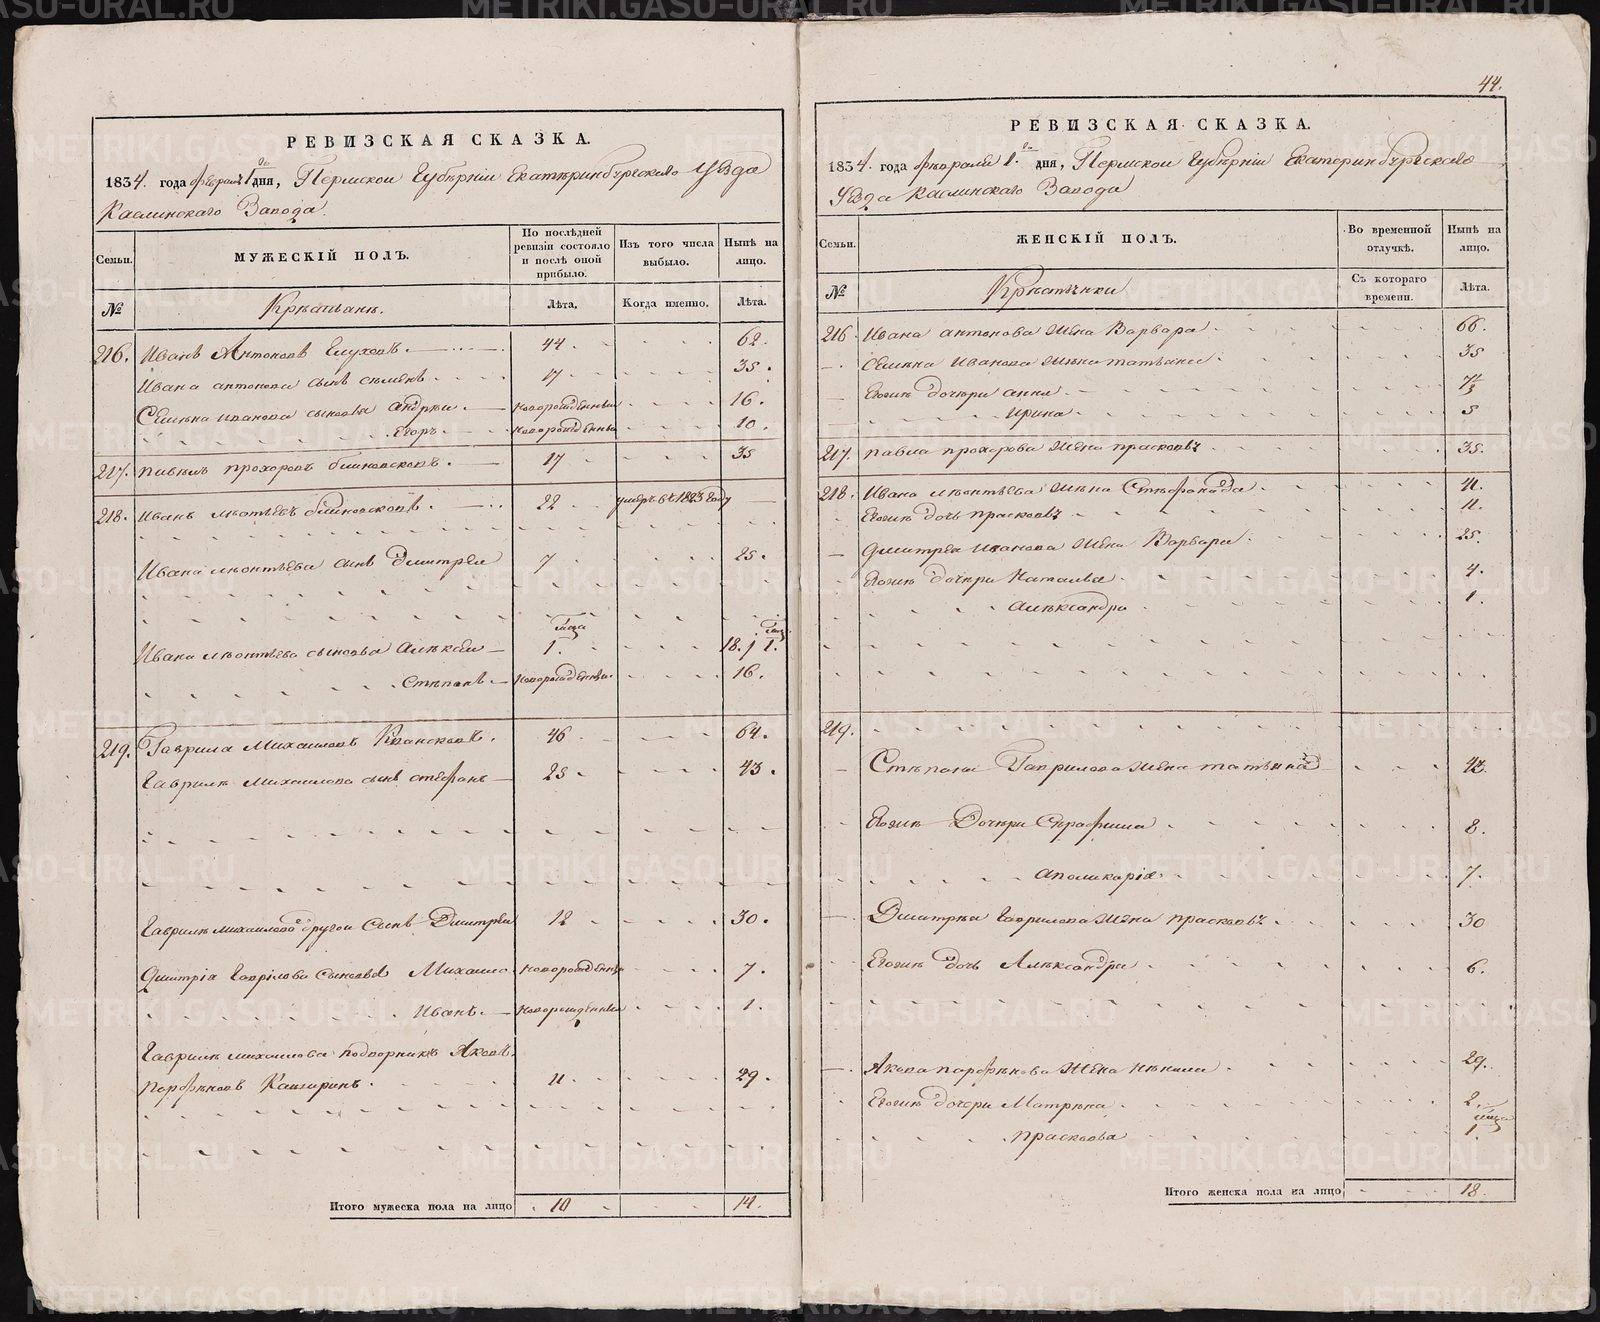 РЕВИЗСКАЯ СКАЗКА.
1834. года февраля 1 дня, Пермской Губерніи Екатеринбургскаго Уезда
Каслинскаго Завода.
Семьи.
МУЖЕСКІЙ ПОЛЪ.
По послѣдней ревизіи состояло и послѣ оной прибыло.
Изъ того числа выбыло.
Нынѣ на лицо.
№
Крѣстьянѣ.
Лѣта.
Когда именно.
Лѣта.
216. Иванъ Антоновъ Глуховъ. 44 62.
Ивана антонова сынъ сѣменъ 17 35.
Семѣна иванова сыновья андрѣи новорожденныи 16.
Егоръ новорожденны 10.
217. павелъ прохоровъ 17 35
218. Иванъ лѣонтьевъ 22 умеръ въ 1823 году
Ивана лѣонтьева сынъ Дмитреи 7 25.
Ивана лѣонтьева сыновья Алѣксеи 1. 18. 1.
Стѣпанъ новорожденны 16.
219. Гаврила Михаиловъ 46 64.
Гаврилы Михаилова сынъ стефанъ 25 43.
Гаврилы михаилова другои Сынъ Дмитреи 12 30.
Дмитрія Гаврілова Сыновья Михаило новорожденны 7.
Иванъ новорожденны 1.
Гаврилы михаилова подворникъ Яковъ
парфѣновъ 11 29.
Итого мужеска пола на лицо 10 14.
44.
РЕВИЗСКАЯ СКАЗКА.
1834. года февраля 1. дня, Пермской Губѣрніи Екатеринбургскаго
Уезда Каслинскаго Завода
Семьи.
ЖЕНСКІЙ ПОЛЪ.
Во временной отлучкѣ.
Нынѣ на лицо.
№
Крѣстьянки
Съ котораго времени.
Лѣта.
216. Ивана антонова жена Варвара 66.
Семѣна Иванова жѣна татьяна 35
Егожъ дочѣри анна
Ирина 5
217. павла прохорова жена прасковья 35.
218. Ивана лѣонтьева жѣна Стѣфанида 41.
Егожъ дочь прасковья 11.
Дмитрея иванова жѣна Варвара 25.
Егожъ дочѣри Наталья 4.
алѣксандра 1.
219.
Стѣпана Гаврилова жѣна татьяна 42
Егожъ Дочѣри Серафима 8.
аполинарія 7.
Дмитрѣя гаврилова жѣна прасковья 30
Егожъ дочь Алѣксандра 6.
Якова парфѣнова жѣна 29.
Егожъ дочѣри Матрѣна 2.
прасковья 1.
Итого женска пола на лицо 18.
METRIKI.GASO-URAL.RU